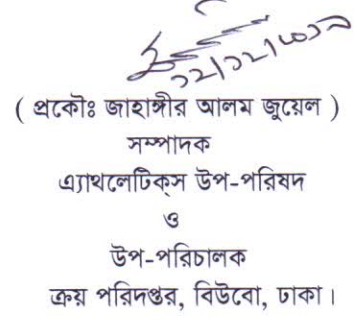 ( প্রকৌঃ জাহাঙ্গীর আলম জুয়েল )
সম্পাদক
এ্যাথলেটিক্স উপ-পরিষদ
ও
উপ-পরিচালক
ক্রয় পরিদপ্তর, বিউবো, ঢাকা।